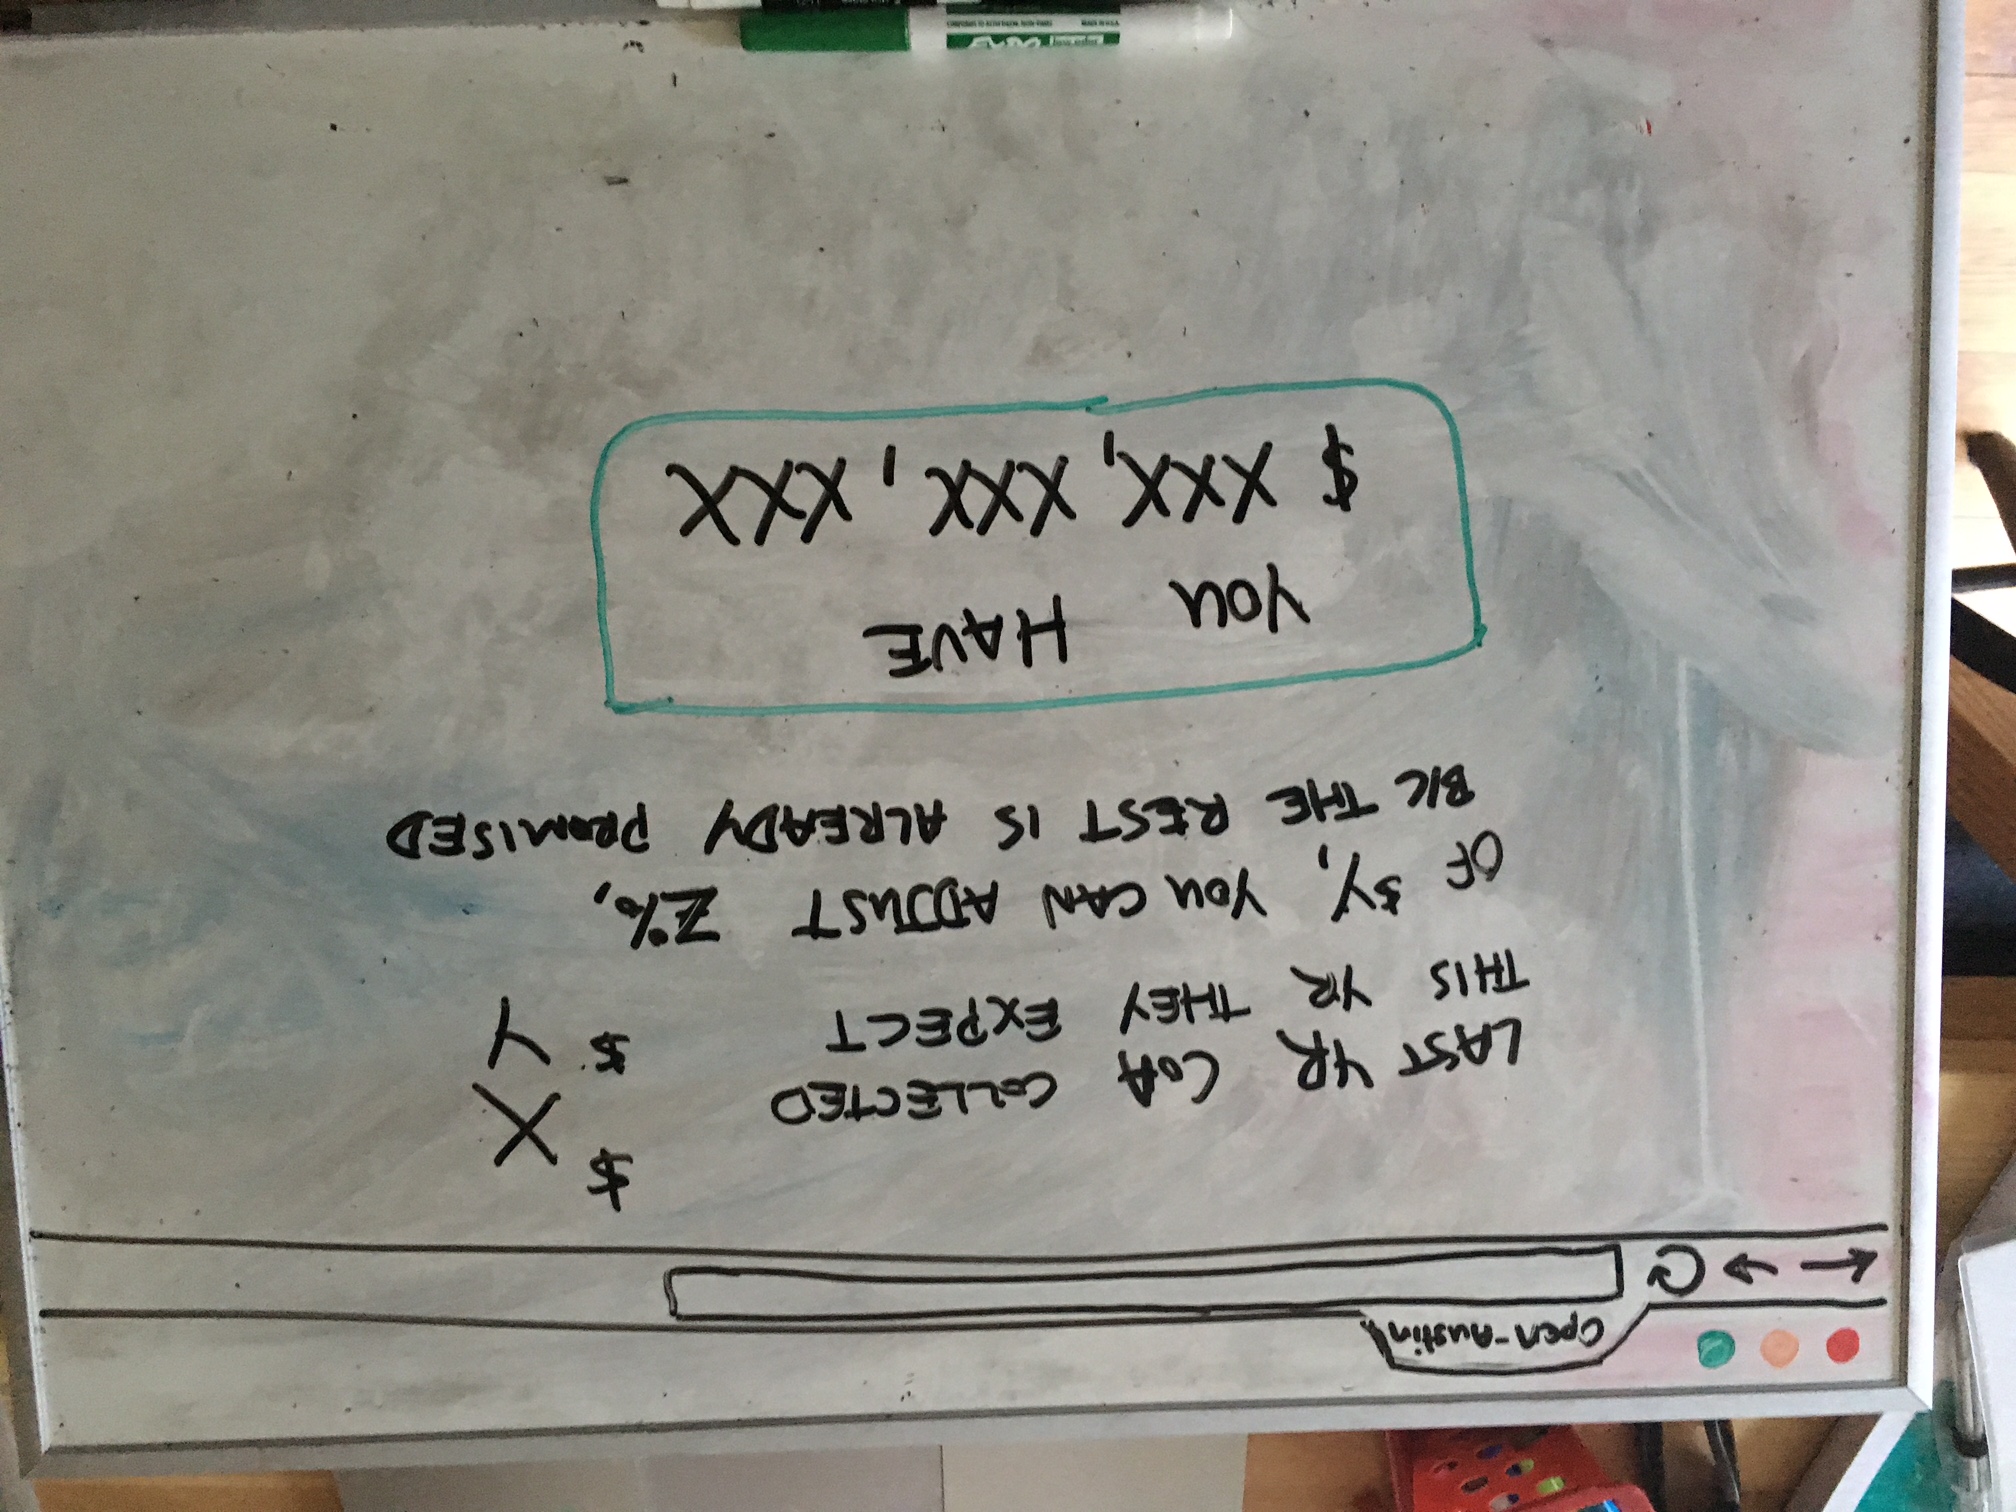 Open-Austin
LAST YR CoA COLLECTED $ X
THIS YR THEY EXPECT $ Y
OF $Y, YOU CAN ADJUST Z%,
B/C THE REST IS ALREADY PROMISED
YOU HAVE
$ XXX, XXX, XXX
EXPO